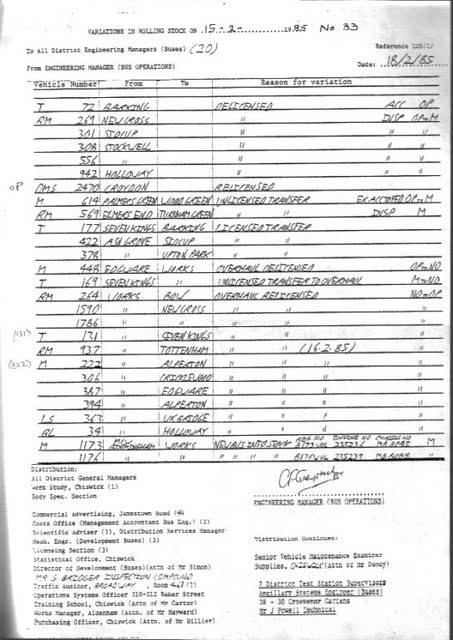 VARIATIONS IN ROLLING STOCK ON 15-2- 1985 No 33
To All District Engineering Managers (Buses) (20) Reference
From ENGINEERING MANAGER (BUS OPERATIONS) Date: 18/2/85
Vehicle Number From To Reason for variation
T 72 BARKING DELICENSED ACC OP
RM 269 NEW CROSS " DISP OP to M
301 SIDCUP " " "
308 STOCKWELL " " "
556 " " " "
942 HOLLOWAY " " "
OP DMS 2470 CROYDON RELICENSED
M 614 PALMERS GREEN WOOD GREEN UNLICENSED TRANSFER EX ACC TO FED OP to M
RM 569 ELMERS END TURNHAM GREEN " " DISP M
T 177 SEVEN KINGS BARKING LICENSED TRANSFER
422 ASH GROVE SIDCUP " "
378 " UPTON PARK " "
M 448 EDGWARE WORKS OVERHAUL DELICENSED OP to NO
T 169 SEVEN KINGS " UNLICENSED TRANSFER TO OVERHAUL M to NO
RM 264 WORKS BOW OVERHAUL RELICENSED NO to OP
1590 " NEW CROSS " " "
1786 " " " " "
(131) T 131 " SEVEN KINGS " " "
RM 937 " TOTTENHAM " " (16.2.85) "
(222) M 222 " ALPERTON " " "
306 " CRICKLEWOOD " " "
387 " EDGWARE " " "
394 " ALPERTON " " "
LS 363 " UXBRIDGE " " "
BL 34 " HOLLOWAY " " "
M 1173 BIRMINGHAM WORKS NEW BUS INTO STOCK REG NO ENGINE NO CHASSIS NO M
1176 " " " " "
Distribution:
All District General Managers
Work Study, Chiswick (1)
Body Spec. Section
ENGINEERING MANAGER (BUS OPERATIONS)
Commercial Advertising, Jamestown Road (4)
Costs Office (Management Accountant Bus Eng.) (2)
Scientific Adviser (2), Distribution Services Manager
Mech. Engr. (Development Buses) (3)
Licensing Section (3)
Statistical Office, Chiswick
Director of Development (Buses)(attn of Mr Simon)
MR S. BRIDGER INSPECTION COMPOUND
Traffic Auditor, BROADWAY, Room
Operations Systems Officer 210-212 Baker Street
Training School, Chiswick (Attn of Mr Carter)
Works Manager, Aldenham (Attn. of Mr Hayward)
Purchasing Officer, Chiswick (Attn. of Mr Hillier)
Distribution Continues:
Senior Vehicle Maintenance Examiner
Supplies, CHISWICK (Attn of Mr Dancy)
7 District Test Station Supervisors
Ancillary Systems Engineer (Buses)
28 - 30 Grosvenor Gardens
Mr J Powell Technical